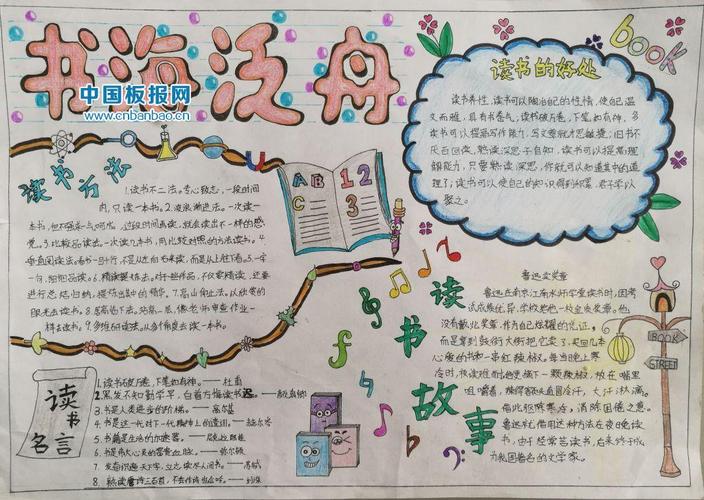 书海泛舟
中国板报网
www.cnbanbao.cn
BOOK
读书的好处
读书养性,读书可以陶冶自己的性情,使自己温
文而雅,具有书卷气;读书破万卷,下笔如有神,多
读书可以提高写作能力,写文章就才思敏捷;旧书不
厌百回读,熟读深思子自知,读书可以提高理
解能力,只要熟读深思,你就可以知道其中的道
理了;读书可以使自己的知识得到积累,君子学以
聚之。
读书方法
1.读书不二法。专心致志,一段时间
内,只读一本书。2.
一次读一
本书,
这段时间再读,就会读出不一样的感
觉。3.比较品读法。一次读几本书,用比较对照的方法读书。4.
垂直阅读法。
不是从左向右来读,而是从上往下看。5.
细细品读。6.精读提炼法。对于好作品,不仅要精读,还要
进行总结归纳,提炼出其中的精华。7.高山仰止法。以欣赏的
眼光去读书。8.居高临下法。
像老师审查作业一
样去读书。9.多维研读法。从多个角度去读一本书。
AB
C
12
3
读书故事
鲁迅卖奖章
鲁迅在南京江南水师学堂读书时,因考
试成绩优异,学校奖他一枚金质奖章。他
没有戴此奖章,作为自己炫耀的凭证,
而是拿到鼓楼大街把它卖了,买回几本
心爱的书和一串红辣椒。每当晚上寒
冷时,夜读难耐,他便摘下一颗辣椒,放在嘴里
咀嚼着,
直冒冷汗,大汗淋漓。
借此驱除寒冷,消除困倦之意。
鲁迅就借用这种方法在夜晚读
书,由于经常苦读书,后来终于成
为我国著名的文学家。
BOOK
STREET
读书名言
1.读书破万卷,下笔如有神。——杜甫
2.黑发不知勤学早,白首方悔读书迟。——颜真卿
3.书是人类进步的阶梯。——高尔基
4.书是这一代对下一代精神上的遗训。——赫尔岑
5.书籍是生活的加速器。
6.书是伟大心灵的富贵血脉。——弥尔顿
7.发奋识遍天下字,立志读尽人间书。——苏轼
8.熟读唐诗三百首,不会作诗也会吟。——孙洙